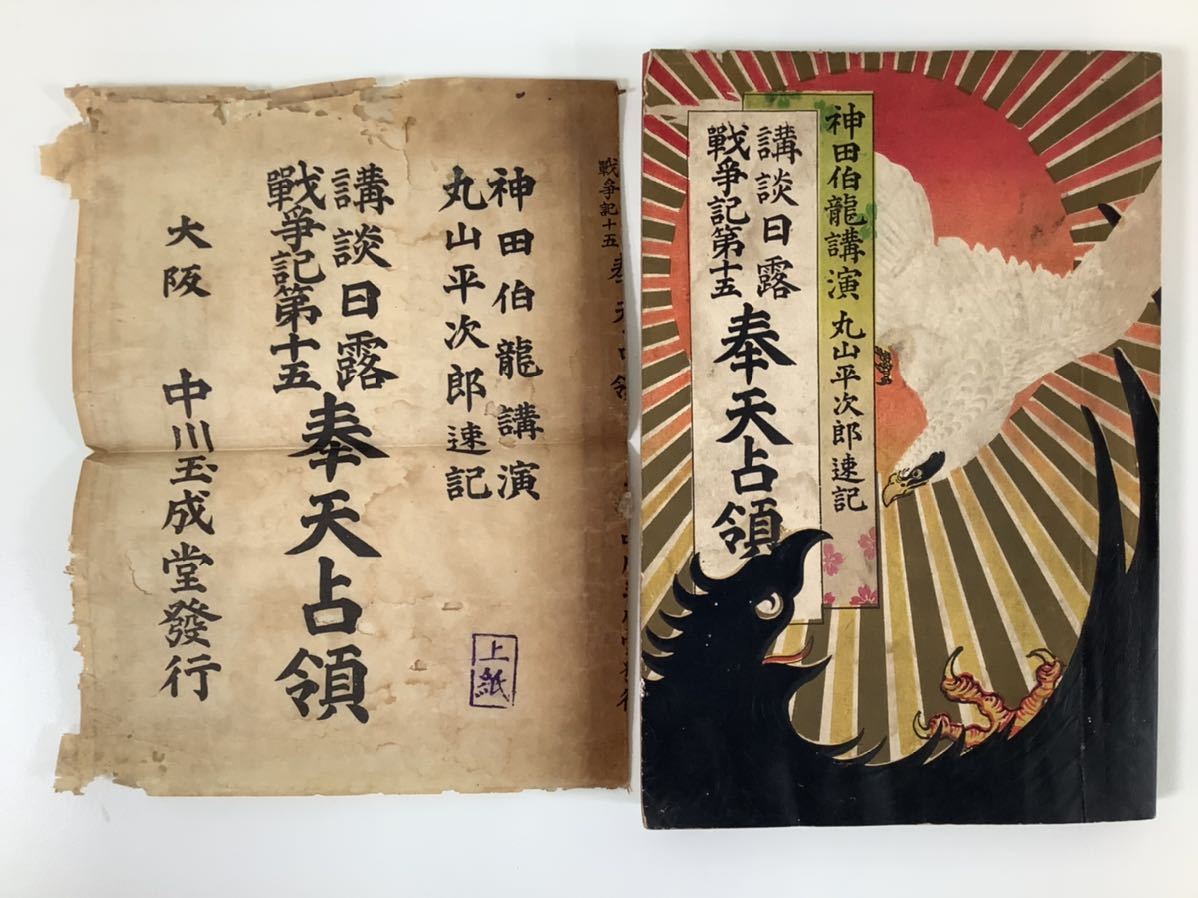 神田伯龍講演
丸山平次郎速記
講談日露
戰爭記第十五
奉天占領
大阪 中川玉成堂發行
上紙
戰爭記十五
神田伯龍講演 丸山平次郎速記
講談日露
戰爭記第十五
奉天占領